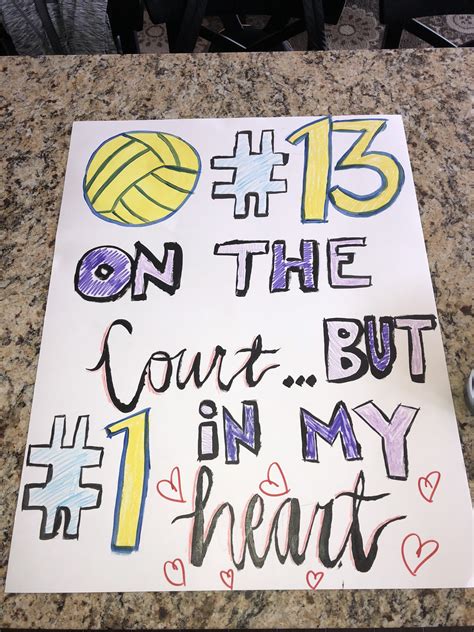 #13
ON THE
Court... BUT
#1 IN MY
heart